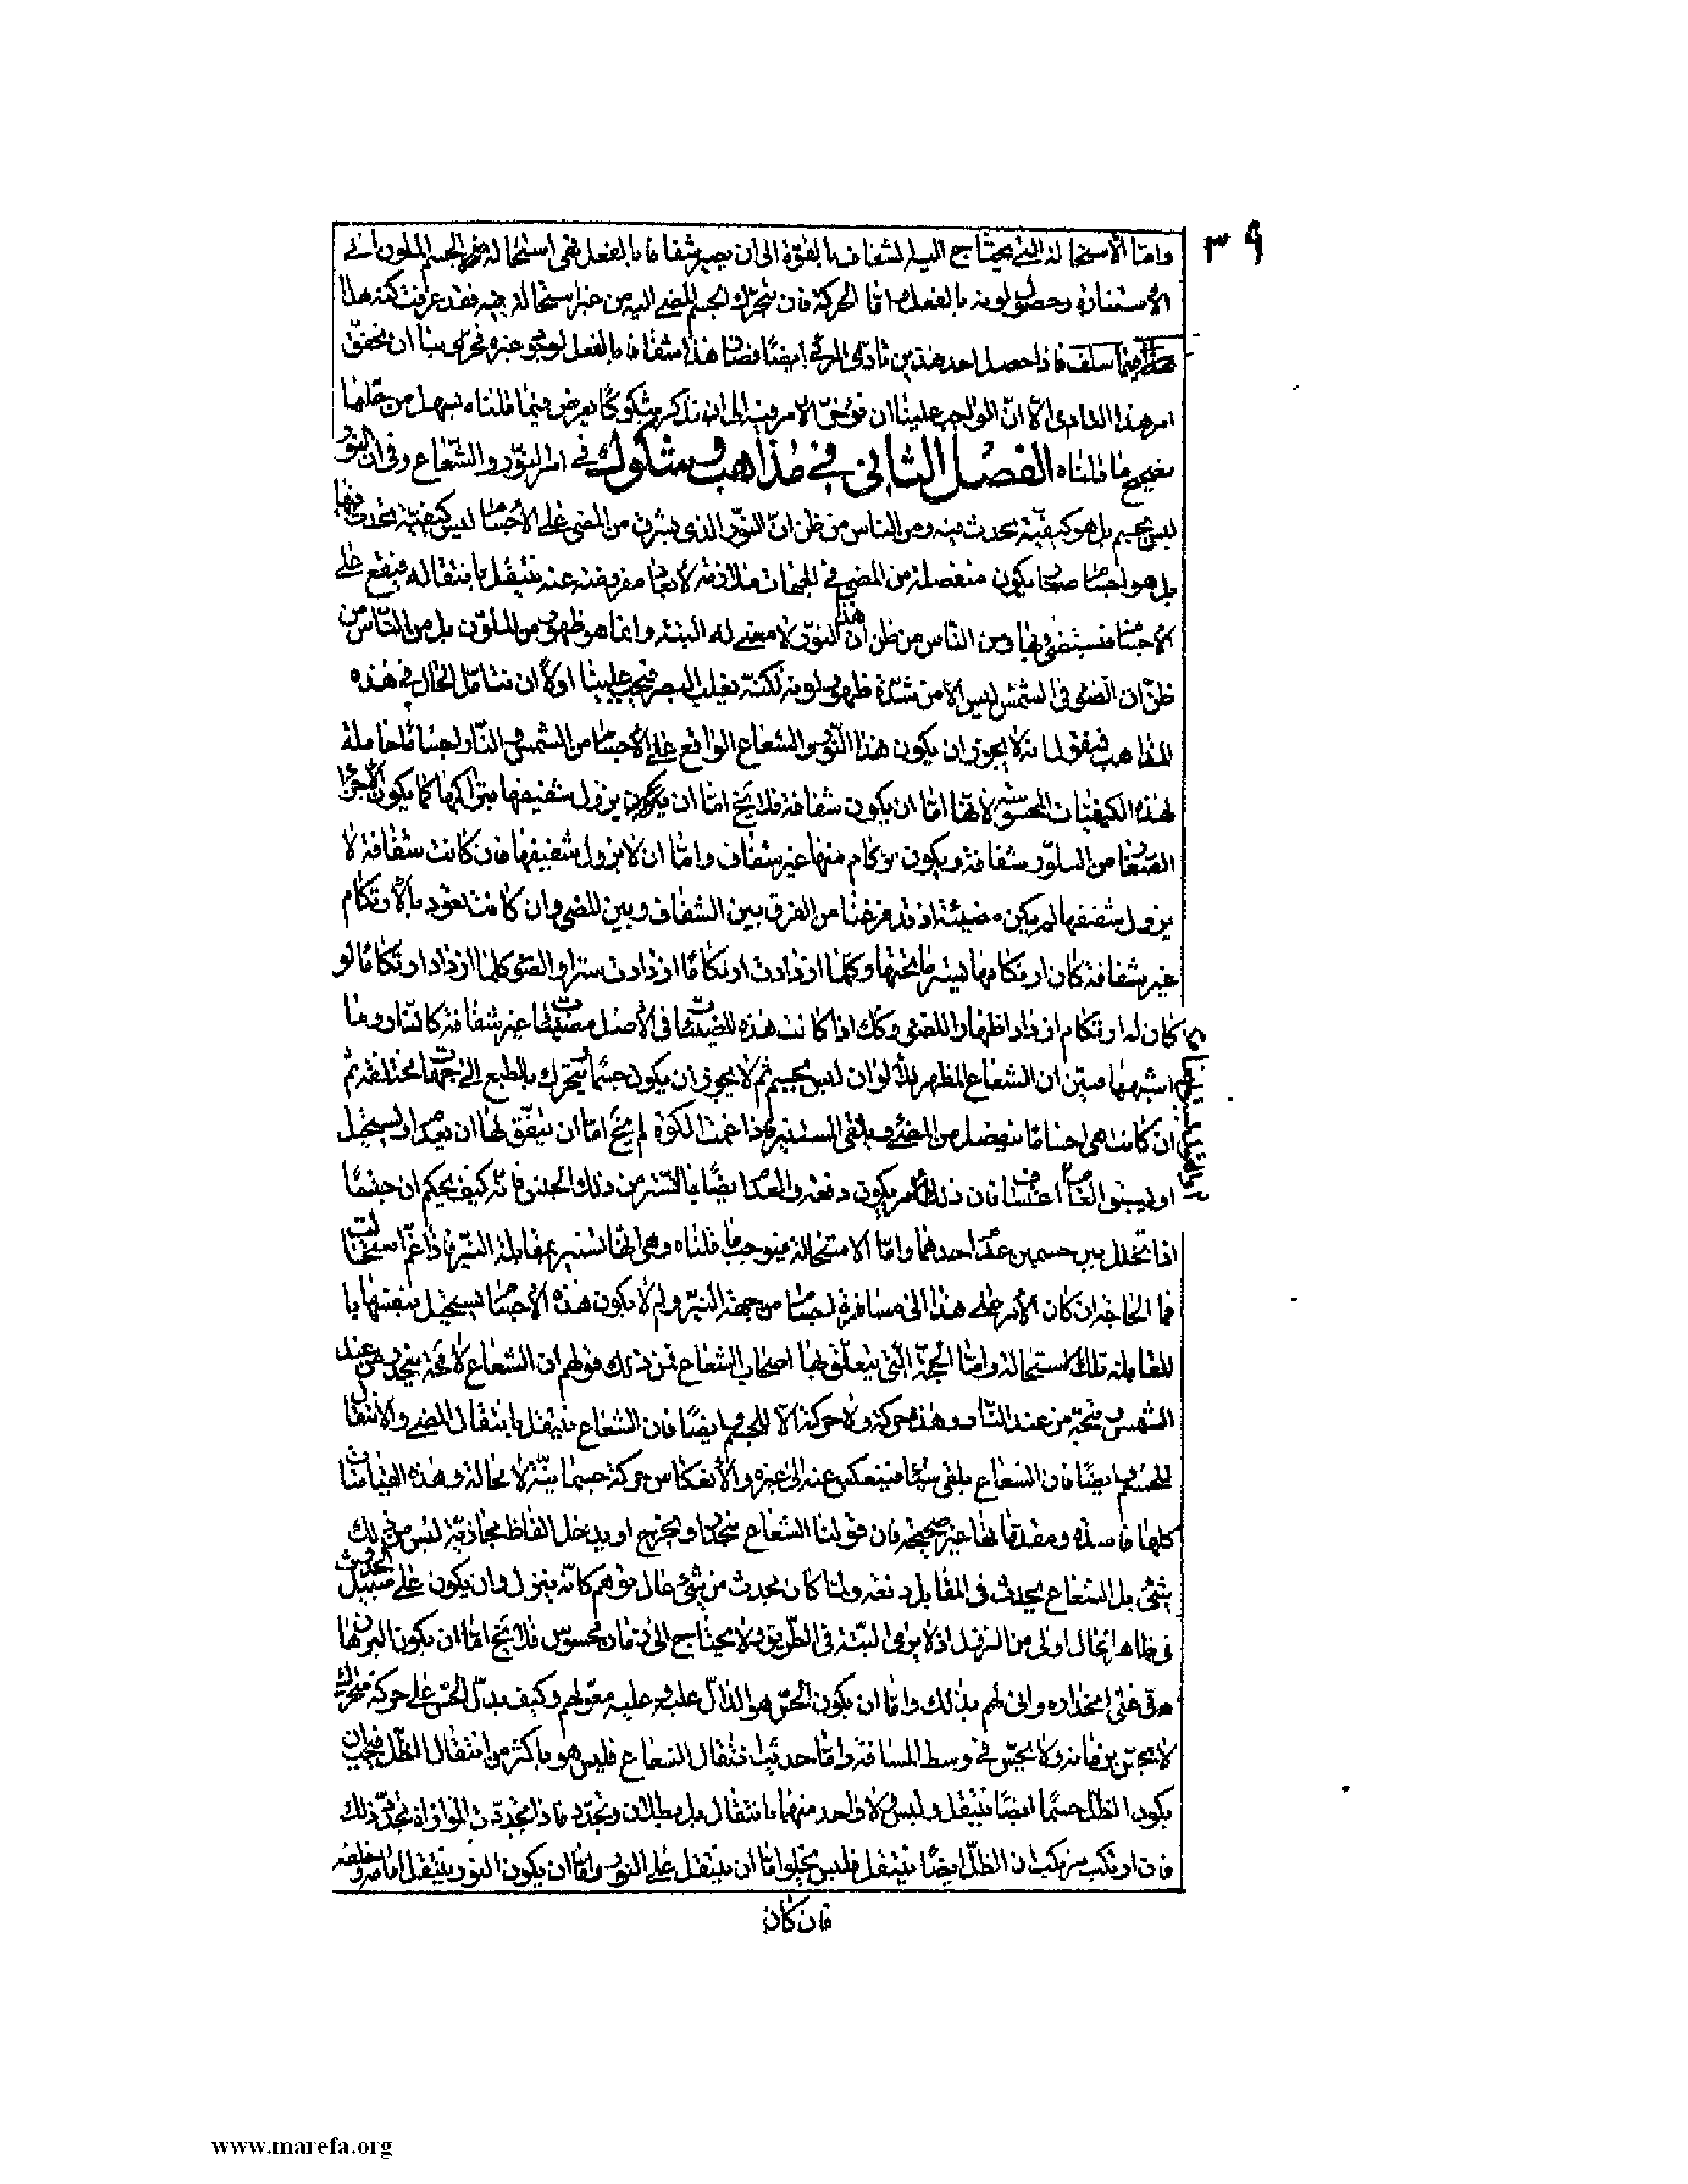 ٣٩
واما الاستحالة التي يحتاج اليها الشفاف بالقوة الى ان يصير شفافا بالفعل فهي استحالة الجسم الملون الى
الاستنارة وحصول لونه بالفعل واما الحركة فان يتحرك الجسم المضئ اليه من غير استحالة فيه فقد عرفت كنه هذا
فيما سلف فاذا حصل احد هذين تادى المرئي ايضا فصار هذا شفافا بالفعل لوجود غيره وحري بنا ان نحقق
امر هذا التادى الا ان الواجب علينا ان نؤخر الامر فيه الى ان نذكر شكوكا يعرض فيما قلناه يسهل من حلها
تصحيح ما قلناه الفصل الثاني في مذاهب وشكوك في امر النور والشعاع وفي ان النور
ليس بجسم بل هو كيفية تحدث فيه ومن الناس من ظن ان النور الذي يشرق من المضئ على الاجسام ليس كيفية تحدث فيها
بل هو اجسام صغار يكون منفصلة من المضئ في الجهات ملازمة لابعاد مفروضة عنه ينتقل بانتقاله فيقع على
الاجسام فتستضئ بها ومن الناس من ظن ان هذا النور لا معنى له البتة وانما هو ظهور من الملون بل من الناس من
ظن ان الضوء في الشمس ليس الا من شدة ظهور لونه لكنه يغلب البصر فيجب علينا اولا ان نتأمل الحال في هذه
المذاهب فنقول انه لا يجوز ان يكون هذا النور والشعاع الواقع على الاجسام من الشمس والنار اجساما حاملة
لهذه الكيفيات المحسوسة لانها اما ان يكون شفافة فلا يخ اما ان يزول شفيفها بتراكمها كما يكون الاجزاء
الصغار من البلور شفافة ويكون ركام منها غير شفاف واما ان لا يزول شفيفها فان كانت شفافة لا
يزول شفيفها لم يكن مضيئة اذ قد فرغنا من الفرق بين الشفاف وبين المضئ وان كانت تعود بالارتكام
غير شفافة كان ارتكامها يستر ما تحتها وكلما ازدادت ارتكاما ازدادت سترا والضوء كلما ازداد ارتكاما لو
كان له ارتكام ازداد اظهارا للضوء وكك اذا كانت هذه المضيئات في الاصل مضيئات غير شفافة كالنار وما
اشبهها فبين ان الشعاع المظهر للالوان ليس بجسم ثم لا يجوز ان يكون جسما يتحرك بالطبع الى جهات مختلفة ثم
ان كانت هي اجساما تنفصل من المضئ ويلقى المستنير فاذا غمت الكوة لم يخ اما ان يتفق لها ان يعدم او يستحيل
او يسبق القاء اعتساف فان ذلك امر يكون دفعة والعدم ايضا بالستر من ذلك الجنس فانه كيف يحكم ان جسما
اذا تخلل بين جسمين عدم احدهما واما الاستحالة فيوجب ما قلناه وهو انها تستنير بمقابلة النير فاذا غم استحالت
فما الحاجة ان كان الامر على هذا الى مسافرة اجسام من جهة النير ولم لا يكون هذه الاجسام يستحيل بنفسها با
لمقابلة تلك الاستحالة واما الحجة التي يتعلق بها اصحاب الشعاع فمن ذلك قولهم ان الشعاع لا محة ينحدر من عند
الشمس ويتجه من عند النار وهذه حركة ولا حركة الا للجسم وايضا فان الشعاع ينتقل بانتقال المضئ والانتقال
للجسم وايضا فان الشعاع يلقى شيئا فينعكس عنه الى غيره والانعكاس حركة جسمانية لا محالة وهذه القياسات
كلها فاسدة ومقدماتها غير صحيحة فان قولنا الشعاع ينحدر او يخرج او يدخل الفاظ مجازية ليس من ذلك
شئ بل الشعاع يحدث في المقابل دفعة ولما كان يحدث من شئ عال توهم كانه ينزل وان يكون على سبيل الحدوث
في ظاهر الحال اولى من النزول اذ لا يرى البتة في الطريق ولا يحتاج الى زمان محسوس فلا يخ اما ان يكون البرهان
دل على انحداره وانى لهم بذلك واما ان يكون الحس هو الدال عليه وعليه معولهم وكيف يدل الحس على حركة متحرك
لا يحس بزمانه ولا يحس في وسط المسافة واما حديث انتقال الشعاع فليس هو باكثر من انتقال الظل فيجب ان
يكون الظل جسما ايضا ينتقل وليس ولا واحد منهما بانتقال بل بطلان وتجدد فاذا تجددت الموازاة تجدد ذلك
فان ارتكب مرتكب ان الظل ايضا ينتقل فليس يخلو اما ان ينتقل على النور واما ان يكون النور ينتقل امامه وخلفه
فان كان
www.marefa.org